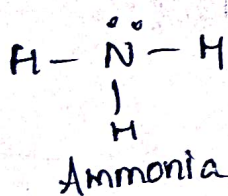 H – N̈ – H
|
H
Ammonia